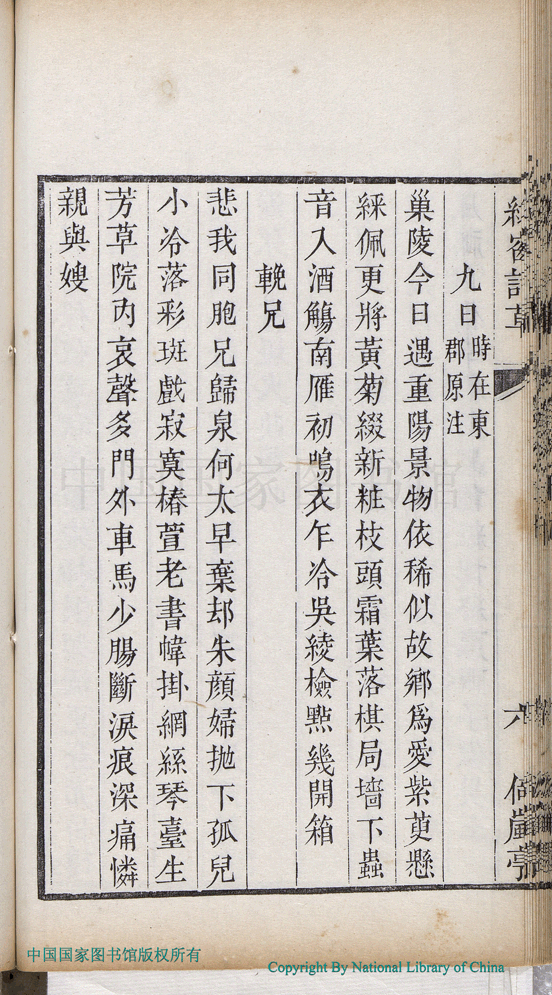 九日時在東郡原注
巢陵今日遇重陽景物依稀似故鄉爲愛紫萸懸
綵佩更將黃菊綴新粧枝頭霜葉落棋局墻下蟲
音入酒觴南雁初鳴衣乍冷吳綾檢點幾開箱
輓兄
悲我同胞兄歸泉何太早棄却朱顏婦拋下孤兒
小冷落彩斑戲寂寞椿萱老書幃掛網絲琴臺生
芳草院内哀聲多門外車馬少腸斷淚痕深痛憐
親與嫂
中国国家图书馆
中国国家图书馆版权所有
Copyright By National Library of China